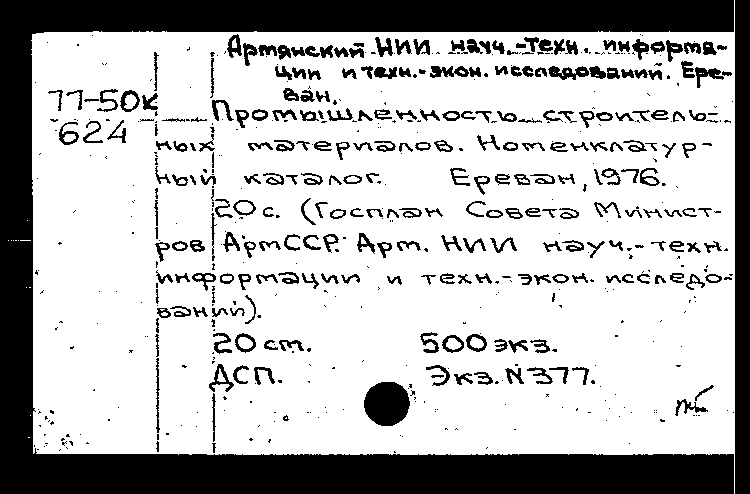 Армянский НИИ науч.-техн. информа-
ции и техн.-экон. исследований. Ере-
ван.
77-50к
624
Промышленность строитель-
ных материалов. Номенклатур-
ный каталог. Ереван, 1976.
20 с. (Госплан Совета Минист-
ров АрмССР. Арм. НИИ науч.-техн.
информации и техн.-экон. исследо-
ваний).
20 ст. 500 экз.
ДСП. Экз. N 377.